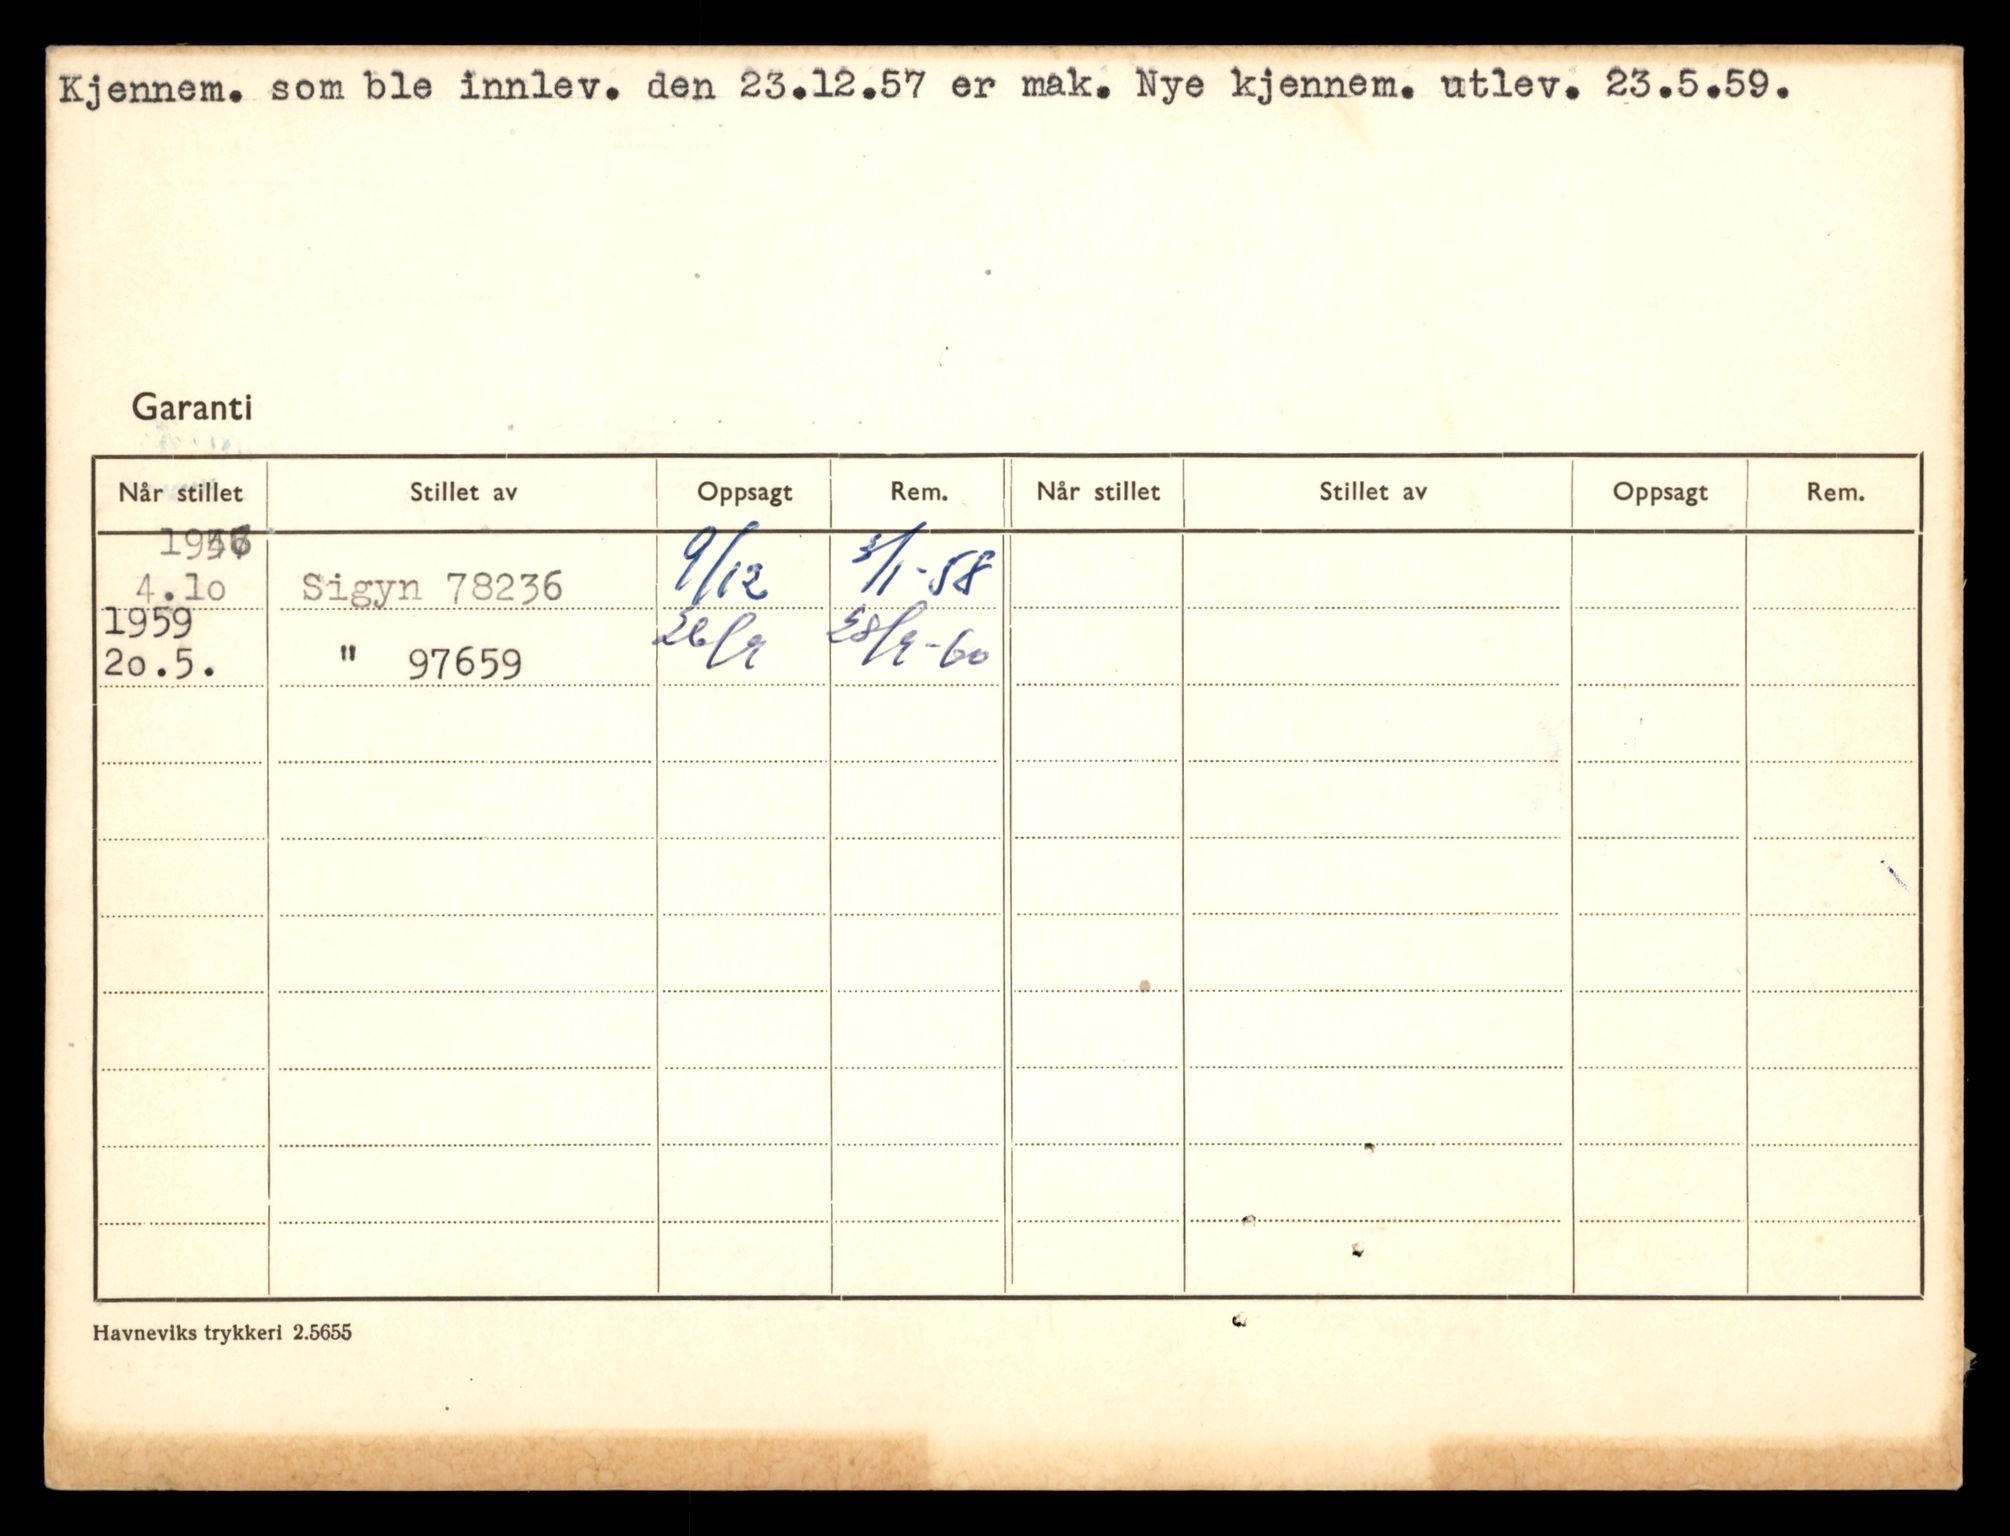 Kjennem. som ble innlev. den 23.12.57 er mak. Nye kjennem. utlev. 23.5.59.
Garanti
Når stillet Stillet av Oppsagt Rem. Når stillet Stillet av Oppsagt Rem.
4.lo Sigyn 78236 9/12 3/1-58
1959
2o.5. " 97659 26/9 28/9-60
Havneviks trykkeri 2.5655